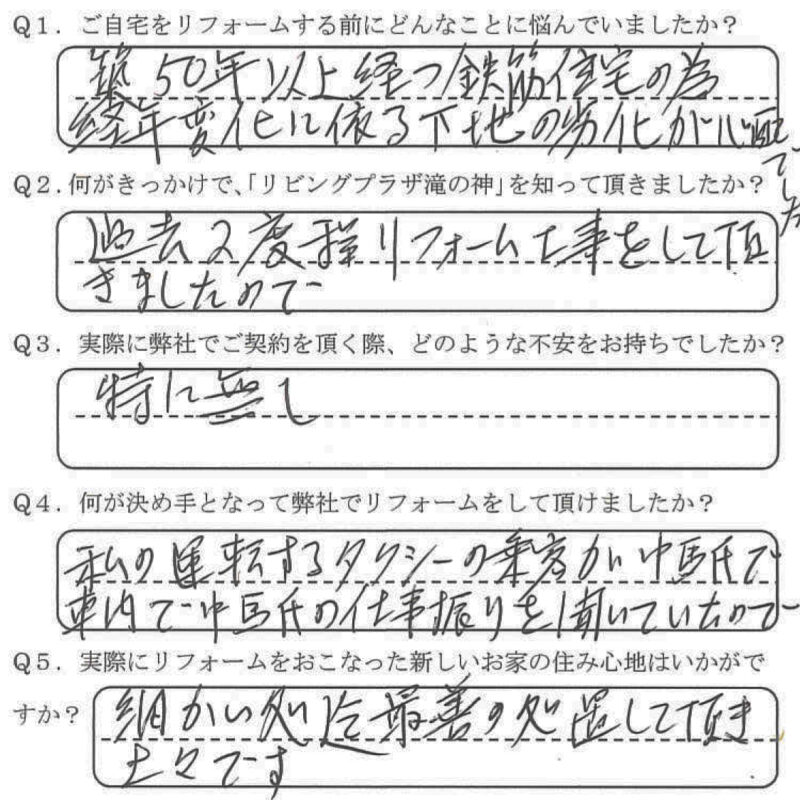 Q1. ご自宅をリフォームする前にどんなことに悩んでいましたか？
築50年以上経つ鉄筋住宅の為
経年変化に依る下地の劣化が心配でした
Q2. 何がきっかけで、「リビングプラザ滝の神」を知って頂きましたか？
過去2度程リフォーム工事をして頂
きましたので
Q3. 実際に弊社でご契約を頂く際、どのような不安をお持ちでしたか？
特に無し
Q4. 何が決め手となって弊社でリフォームをして頂けましたか？
私の運転するタクシーの乗客が中馬氏で
車内で中馬氏の仕事振りを聞いていたので
Q5. 実際にリフォームをおこなった新しいお家の住み心地はいかがで
すか？
細かい処迄最善の処置して頂き
上々です